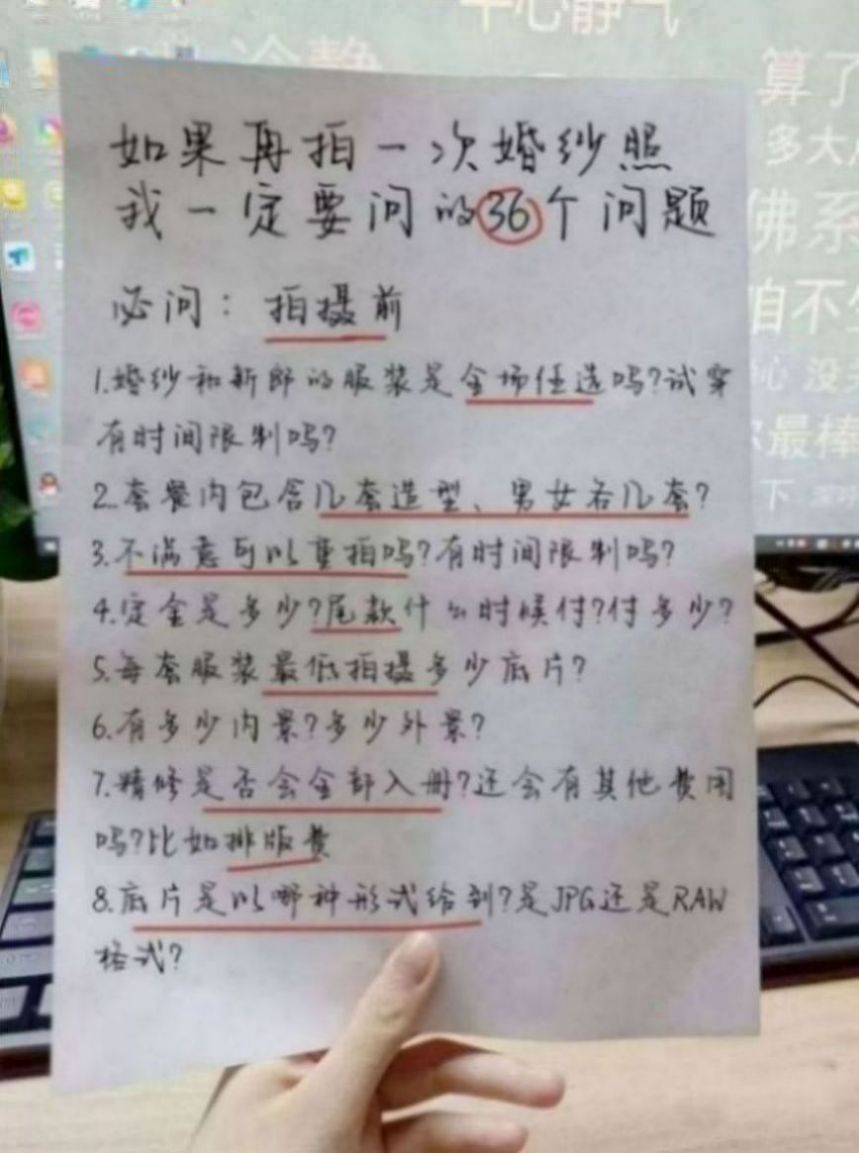 平心静气
冷静
算了
多大
佛系
咱不
心 没
最棒
下
如果再拍一次婚纱照
我一定要问的36个问题
必问：拍摄前
1.婚纱和新郎的服装是全场任选吗?试穿
有时间限制吗?
2.套餐内包含几套造型、男女各几套?
3.不满意可以重拍吗?有时间限制吗?
4.定金是多少?尾款什么时候付?付多少?
5.每套服装最低拍摄多少底片?
6.有多少内景?多少外景?
7.精修是否会全部入册?还会有其他费用
吗?比如排版费
8.底片是以哪种形式给到?是JPG还是RAW
格式?